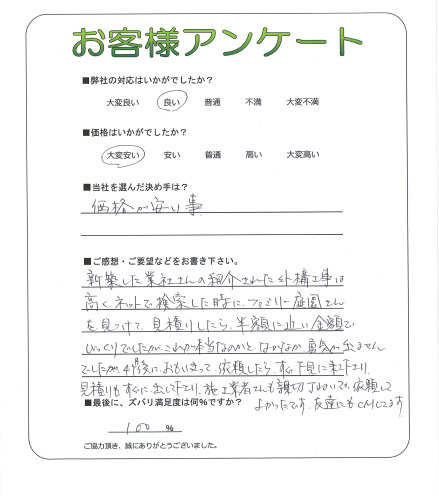 お客様アンケート
■弊社の対応はいかがでしたか?
大変良い 良い 普通 不満 大変不満
■価格はいかがでしたか?
大変安い 安い 普通 高い 大変高い
■当社を選んだ決め手は?
価格が安い事
■ご感想・ご要望などをお書き下さい。
新築した業社さんの紹介された外構工事は
高く、ネットで検索した時に、ファミリー庭園さん
を見つけて、見積りしたら、半額に近い金額で
びっくりでしたが、これが本当なのかと なかなか勇気が出ません
でしたが、4ヶ月後に、おもいきって、依頼したら、すぐ下見に来て下さり、
見積りもすぐに出して下さり、施工業者さんも親切丁ねいで、依頼して
よかったです。友達にもCMしてます
■最後に、ズバリ満足度は何%ですか?
100 %
ご協力頂き、誠にありがとうございました。